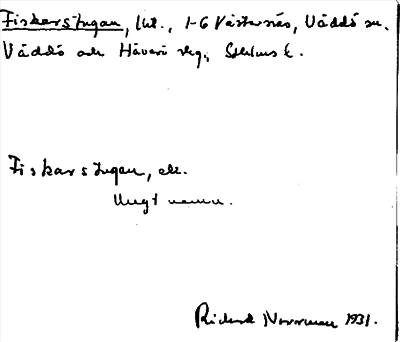 Fiskarstugan, lht., 1-6 Västersnäs, Väddö sn.
Väddö och Häverö skg., Sthlms l.
Fiskarstugan, etc.
Ungt namn.
Rickard Norrman 1931.